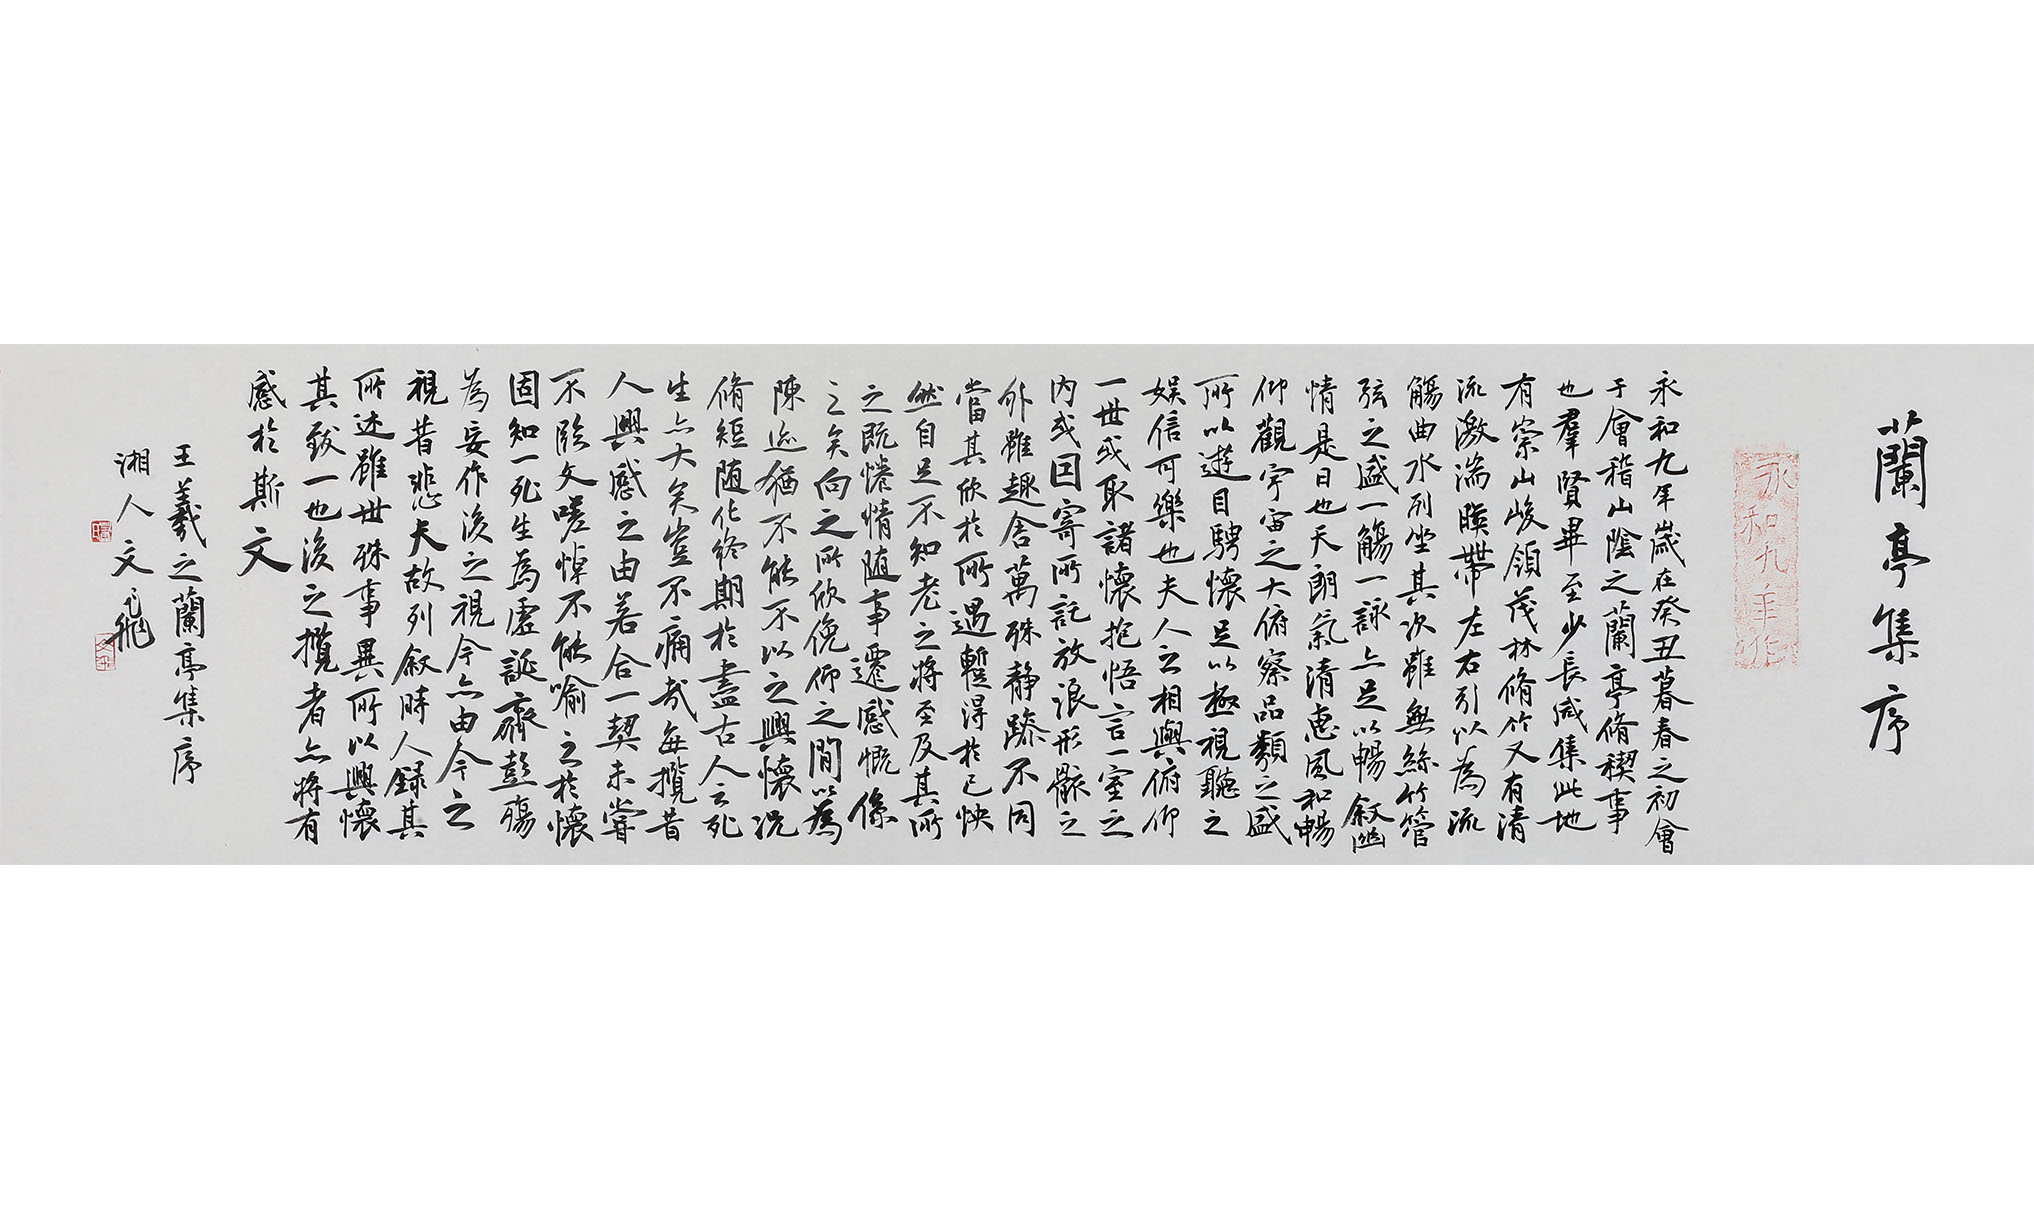 蘭亭集序
永和九年作
永和九年歲在癸丑暮春之初會
于會稽山陰之蘭亭脩禊事
也羣賢畢至少長咸集此地
有崇山峻領茂林脩竹又有清
流激湍暎帶左右引以為流
觴曲水列坐其次雖無絲竹管
弦之盛一觴一詠亦足以暢敘幽
情是日也天朗氣清惠風和暢
仰觀宇宙之大俯察品類之盛
所以遊目騁懷足以極視聽之
娛信可樂也夫人之相與俯仰
一世或取諸懷抱悟言一室之
内或因寄所託放浪形骸之
外雖趣舍萬殊静躁不同
當其欣於所遇蹔得於己怏
然自足不知老之將至及其所
之既惓情随事遷感慨係
之矣向之所欣俛仰之間以為
陳迹猶不能不以之興懷況
脩短随化終期於盡古人云死
生亦大矣豈不痛哉每攬昔
人興感之由若合一契未嘗
不臨文嗟悼不能喻之於懷
固知一死生為虛誕齊彭殤
為妄作後之視今亦由今之
視昔悲夫故列敘時人録其
所述雖世殊事異所以興懷
其致一也後之攬者亦將有
感於斯文
王羲之蘭亭集序
湘人文飛